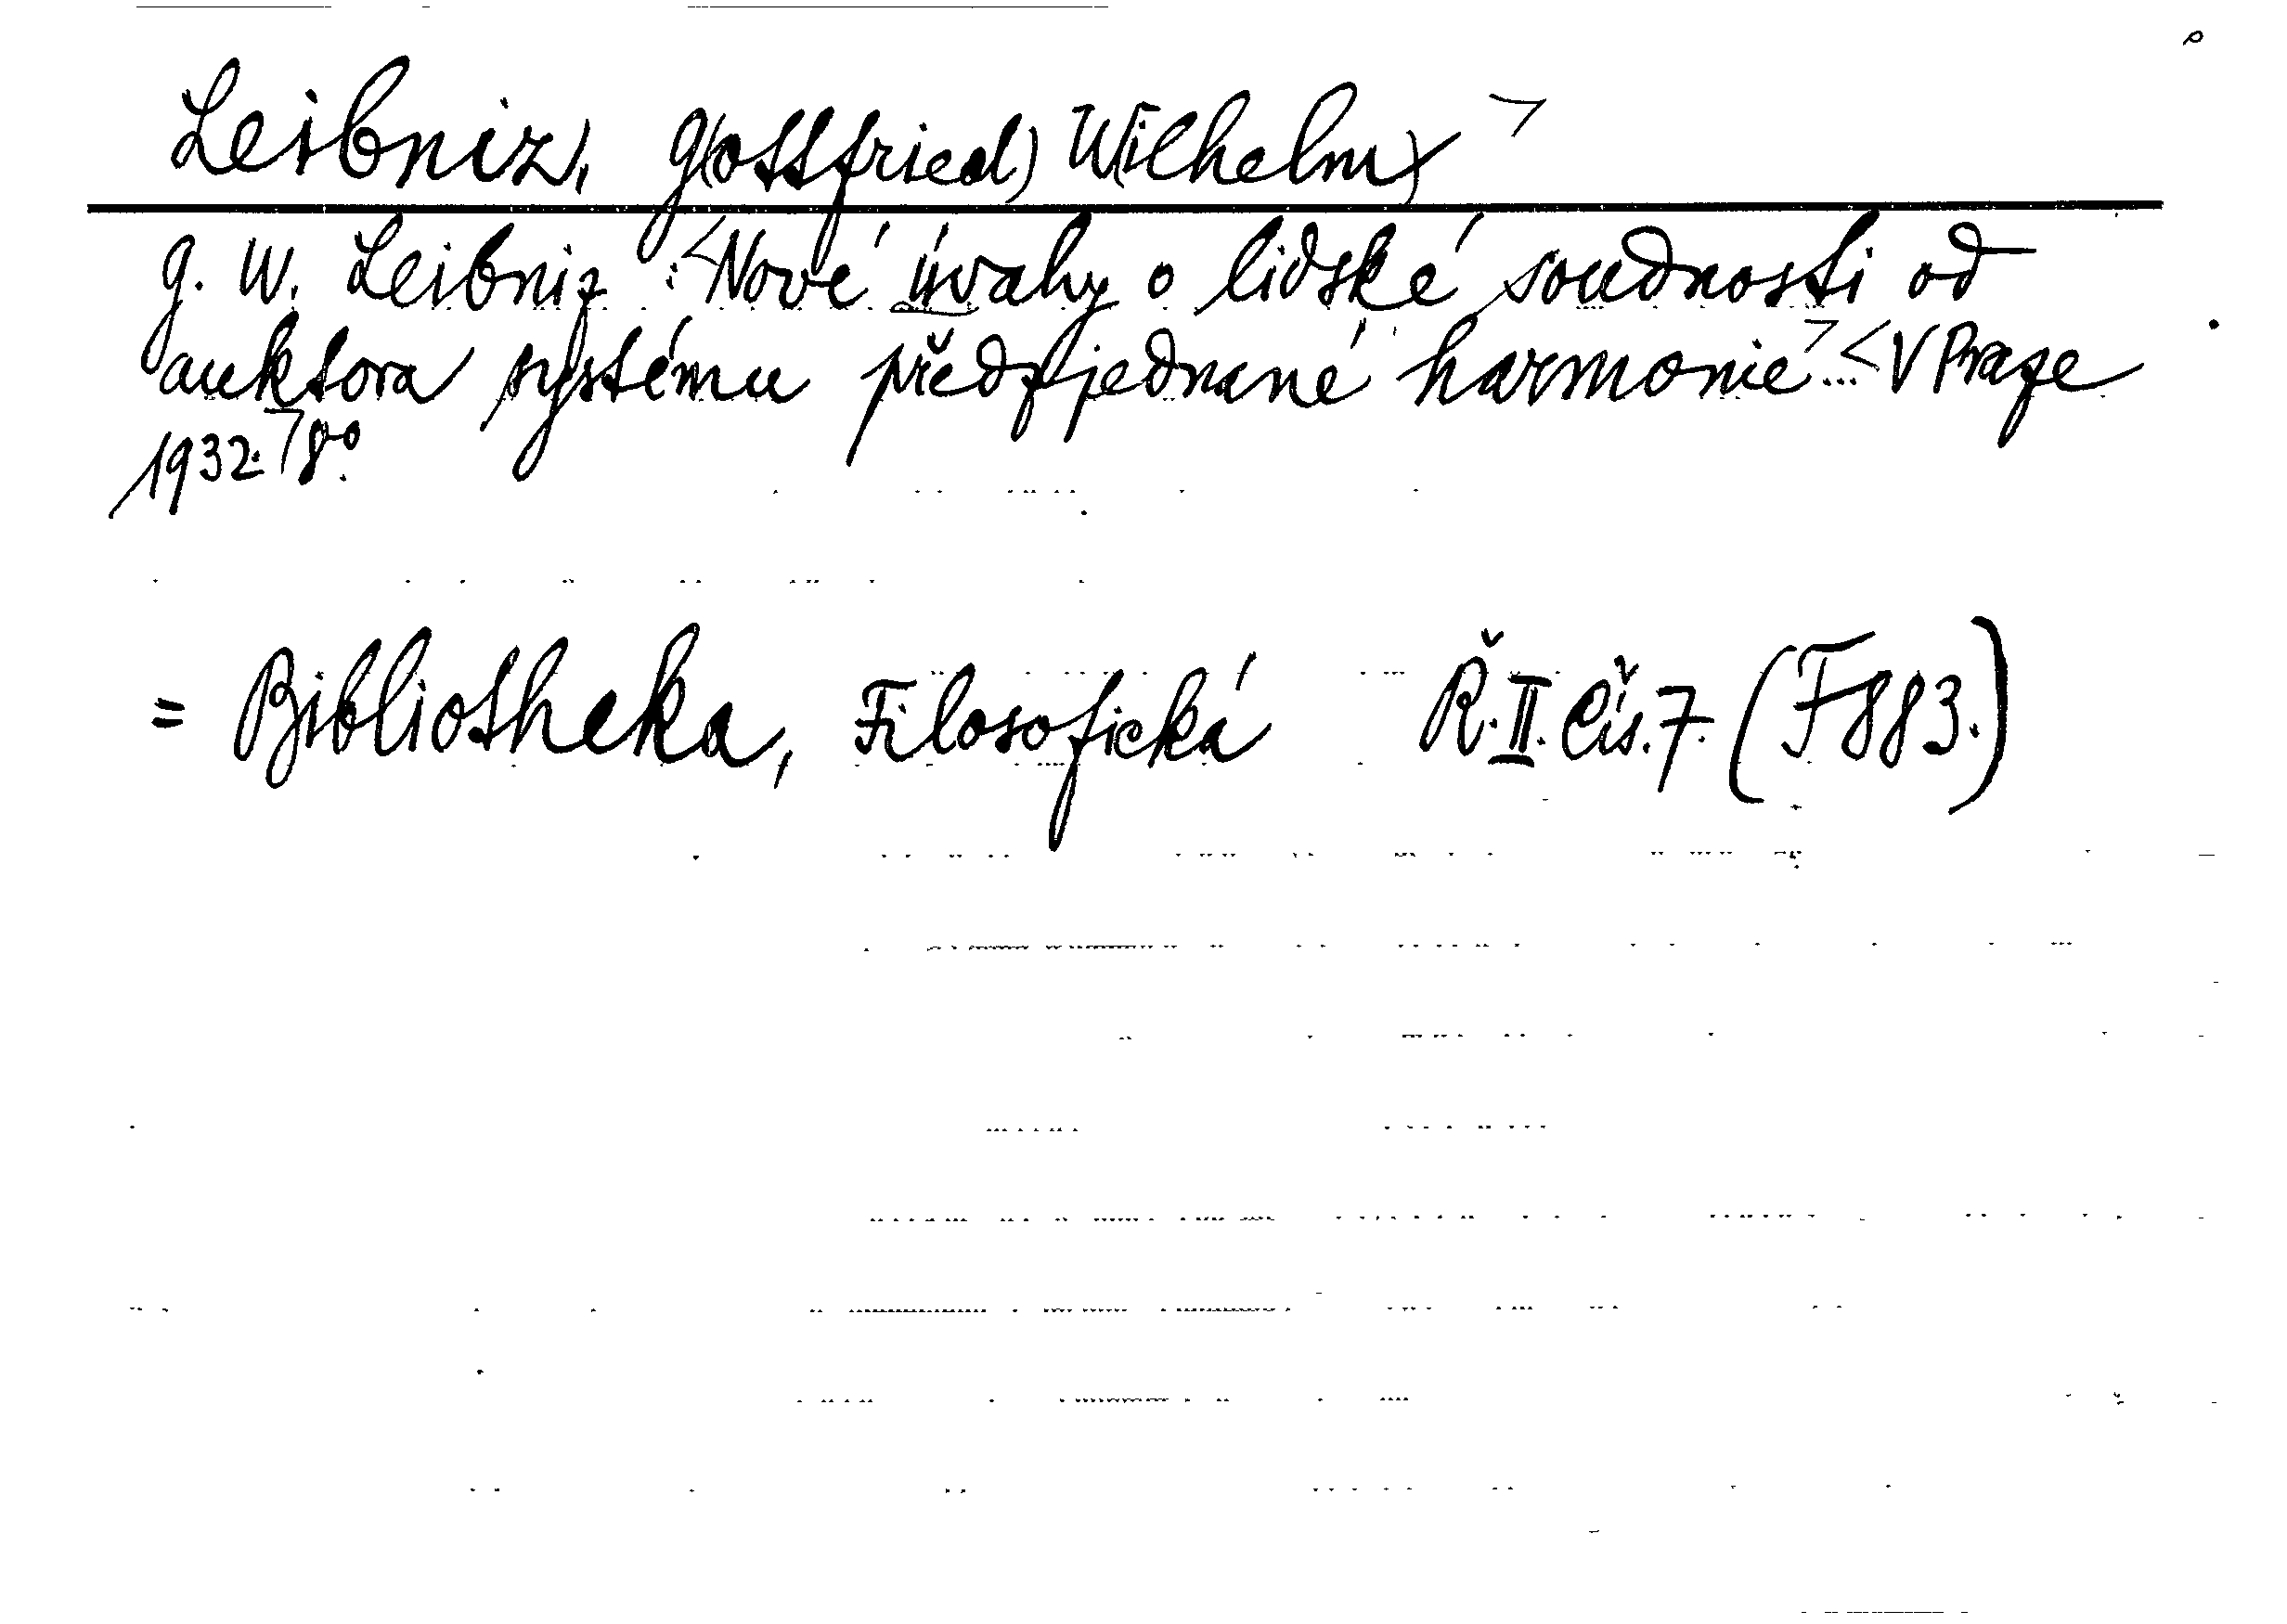 Leibniz, G(ottfried) W(ilhelm)>
G. W. Leibniz: <Nové úvahy o lidské soudnosti od
auktora systému předzjednané harmonie> ... <V Praze
1932.> 8°.
= Bibliotheka, Filosofická Ř. II. Čís. 7. (F 883.)